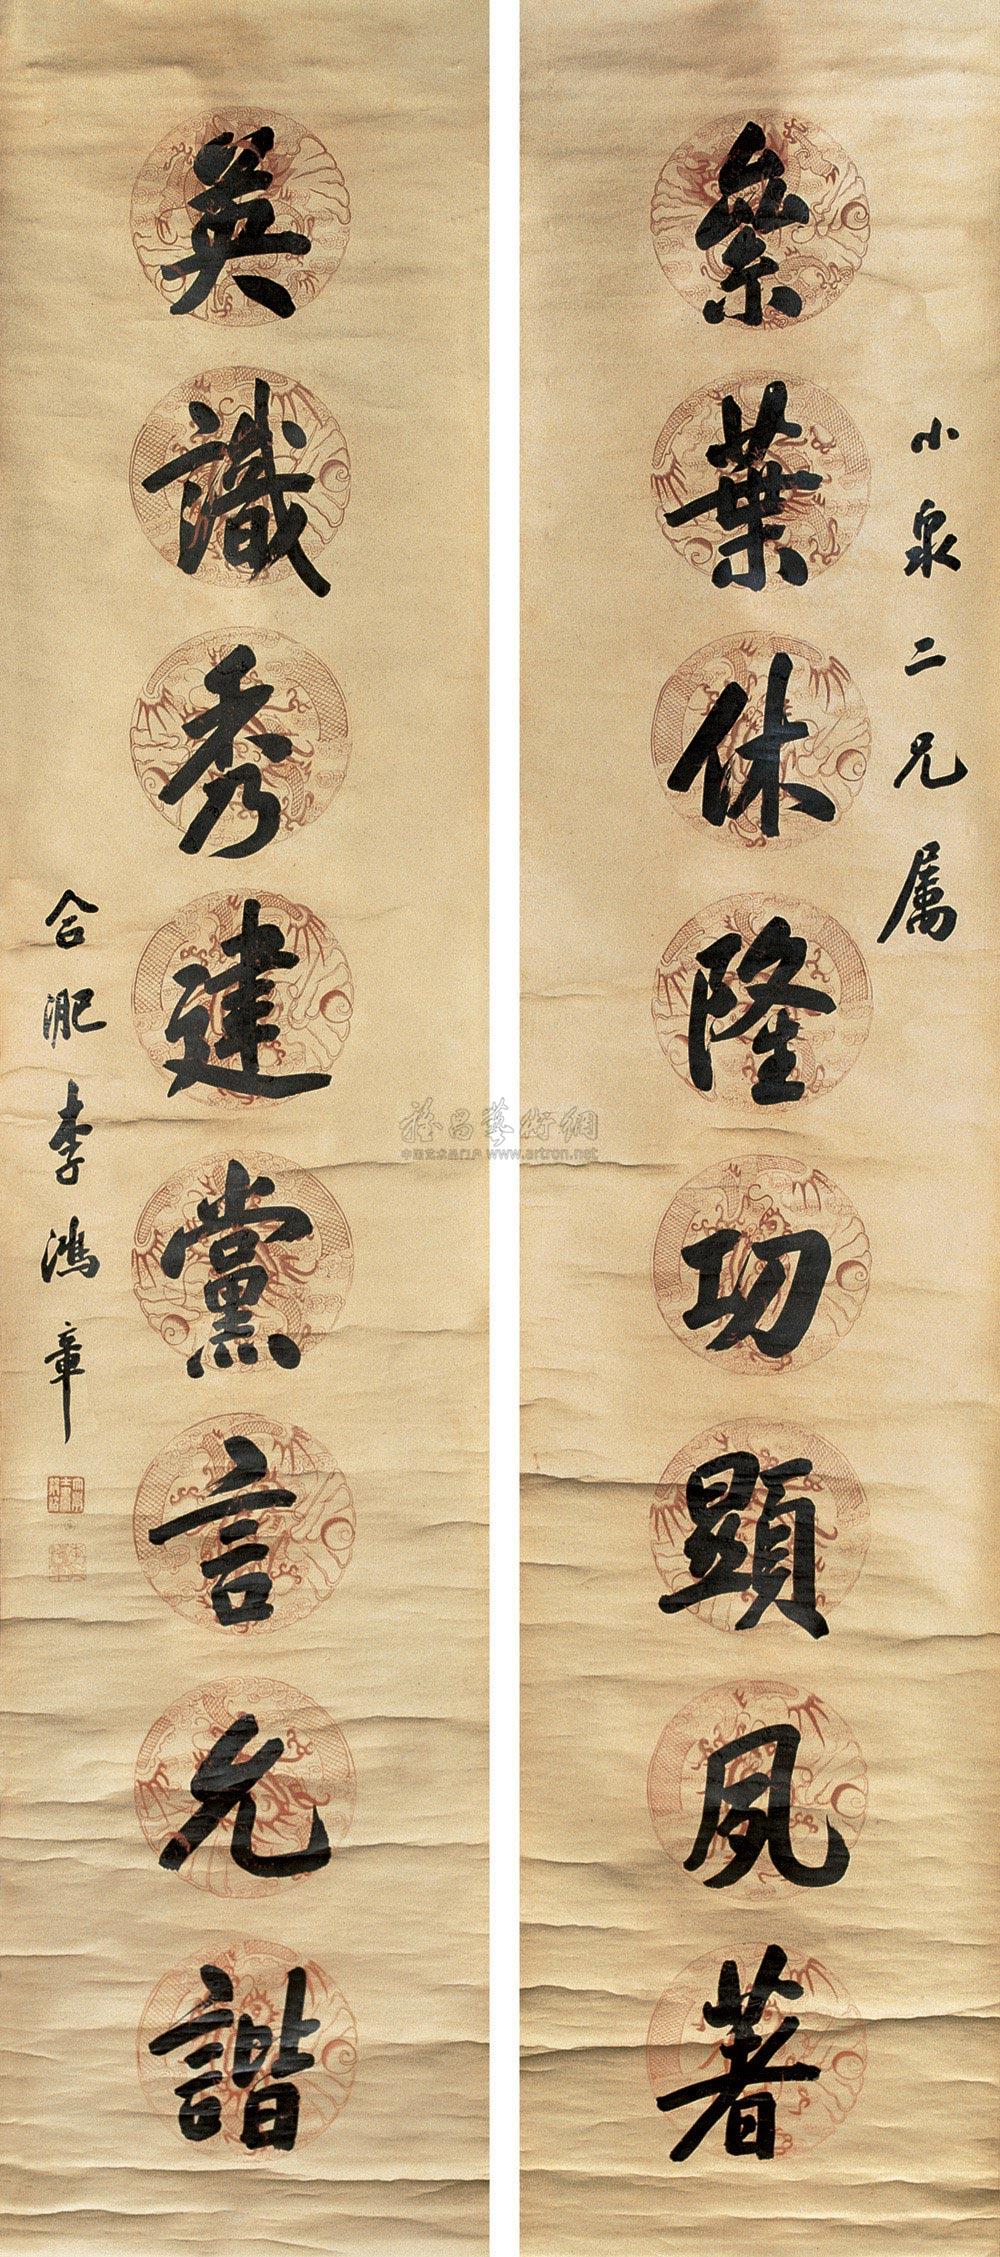 小泉二兄属
絫葉休隆功顯夙著
英識秀建黨言允諧
合淝李鴻章
雅昌藝術網
中国艺术品门户 www.artron.net